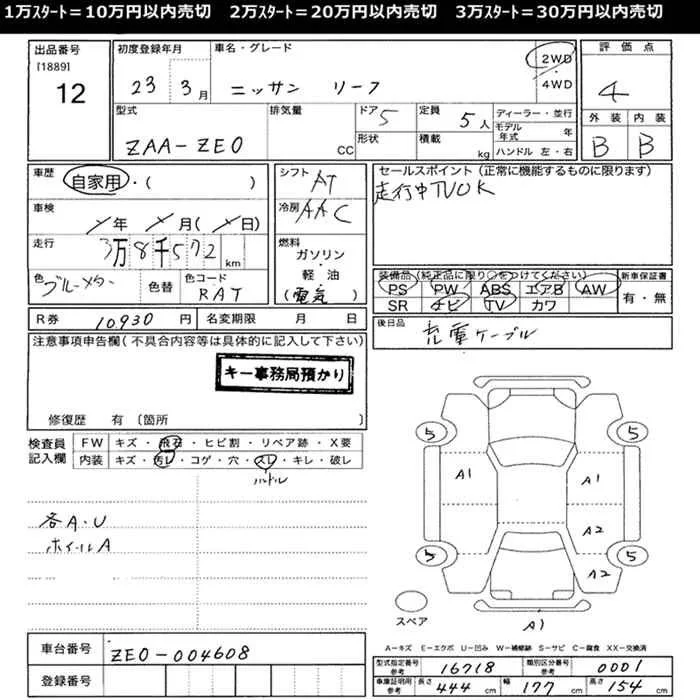 1万ｽﾀｰﾄ＝10万円以内売切　2万ｽﾀｰﾄ＝20万円以内売切　3万ｽﾀｰﾄ＝30万円以内売切
出品番号 [1889] 12
初度登録年月 23 3月
車名・グレード ニッサン リーフ
2WD・4WD
評価点 4
外装 B 内装 B
型式 ZAA-ZE0
排気量 CC
ドア 5
形状
定員 5人
積載 kg
ディーラー・並行
モデル年式 年
ハンドル 左・右
車歴 自家用・( )
車検 年 月( 日)
走行 3万8千572km
色 ブルーメタ 色替
色コード RAT
シフト AT
冷房 AAC
燃料 ガソリン・軽油(電気)
セールスポイント（正常に機能するものに限ります）
走行中TVOK
装備品（純正品に限り○をつけてください）
PS PW ABS エアB AW
SR ナビ TV カワ
新車保証書 有・無
R券 10930円
名変期限 月 日
後日品 充電ケーブル
注意事項申告欄（不具合内容等は具体的に記入して下さい）
キー事務局預かり
修復歴 有〔箇所 〕
検査員記入欄
FW キズ・飛石・ヒビ割・リペア跡・X要
内装 キズ・汚レ・コゲ・穴・スレ・キレ・破レ
ハンドル
各A・U
ホイールA
5 5
A1 A1
A2
5 5
A2
スペア A1
A－キズ E－エクボ U－凹み W－補修跡 S－サビ C－腐食 XX－交換済
車台番号 ZE0-004608
登録番号
型式指定番号参考 16718
類別区分番号参考 0001
車庫証明用参考 長さ 444cm 幅 177cm 高さ 154cm